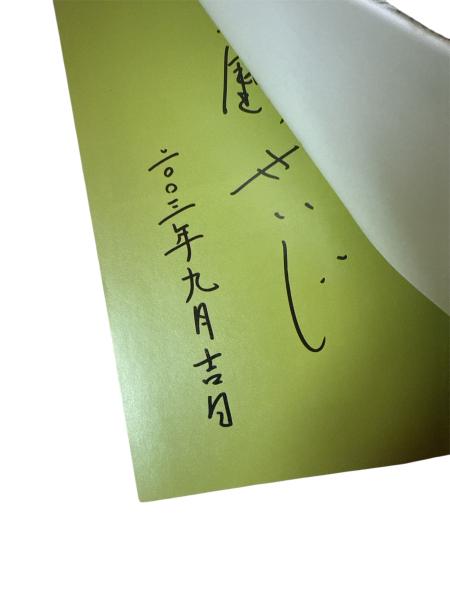 せいじ
二〇〇三年九月吉日